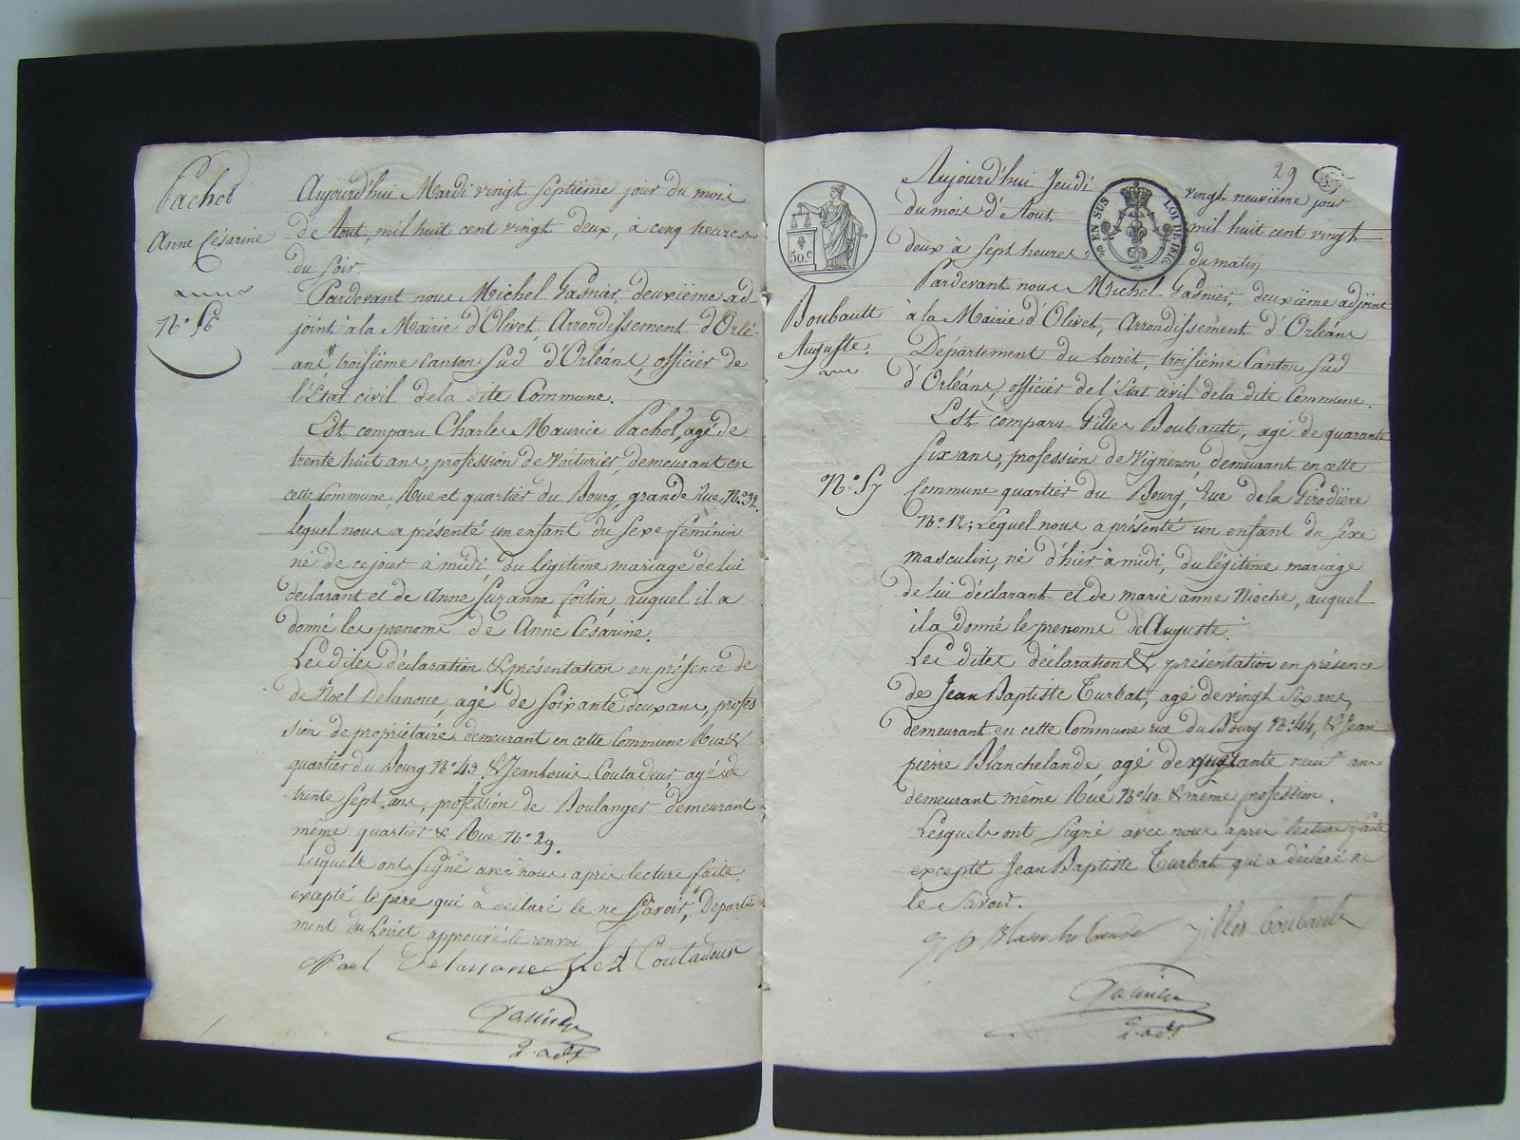 Pachot
Anne Césarine
N.° 56
Aujourd'hui Mardi vingt septième jour du mois
de Aout, mil huit cent vingt deux, à cinq heures
du soir.
Pardevant nous Michel Gasnier, deuxième ad
joint à la Mairie d'Olivet, Arrondissement d'Orlé-
ans, troisième Canton Sud d'Orléans, officier de
l'Etat civil de la dite Commune.
Est comparu Charles Maurice Pachot, agé de
trente huit ans, profession de Voiturier, demeurant en
cette Commune, Rue et quartier du Bourg, grande Rue, N.° 32.
lequel nous a présenté un enfant du sexe féminin
né de ce jour à midi du légitime mariage de lui
déclarant et de Anne Suzanne fortin, auquel il a
donné les prenoms de Anne Césarine.
Les dites déclaration & présentation en présence de
de Noel Delanoue, agé de soixante deux ans, profes
sion de propriétaire, demeurant en cette Commune Rue &
quartier du Bourg N.° 43. & Jean Louis Coutadeur agé de
trente sept ans, profession de Boulanger demeurant
même quartier & Rue N.° 29.
lesquels ont signé avec nous après lecture faite.
excepté le père qui a déclaré le ne savoir, Departe
ment du Loiret approuvé le renvoi
Coutadeur
Gasnier
2. adj
29
50.c
EN SUS
LOI DE 1816
Boubault
Auguste.
N.° 57
Aujourd'hui Jeudi vingt neuvième jour
du mois d'Aout mil huit cent vingt
deux à sept heures du matin
Pardevant nous Michel Gasnier, deuxième adjoint
à la Mairie d'Olivet, Arrondissement d'Orléans
Département du Loiret, troisième Canton Sud
d'Orléans, officier de l'Etat civil de la dite Commune.
Est comparu Gilles Boubault, agé de quarante
six ans, profession de Vigneron, demeurant en cette
Commune quartier du Bourg, Rue de la Girodière
N.° 12; lequel nous a présenté un enfant du sexe
masculin, né d'hier à midi, du légitime mariage
de lui déclarant et de marie anne Nioche, auquel
il a donné le prenoms de Auguste.
Les dites déclaration & présentation en présence
de Jean Baptiste Turbat, agé de vingt six ans,
demeurant en cette Commune rue du Bourg N.° 44, & Jean
pierre Blanchelande agé de neuf ans
demeurant même Rue N.° 40 & même profession.
Lesquels ont signé avec nous après lecture faite
excepté Jean Baptiste Turbat qui a déclaré ne
le savoir.
Gilles boubault
Gasnier
2. adj